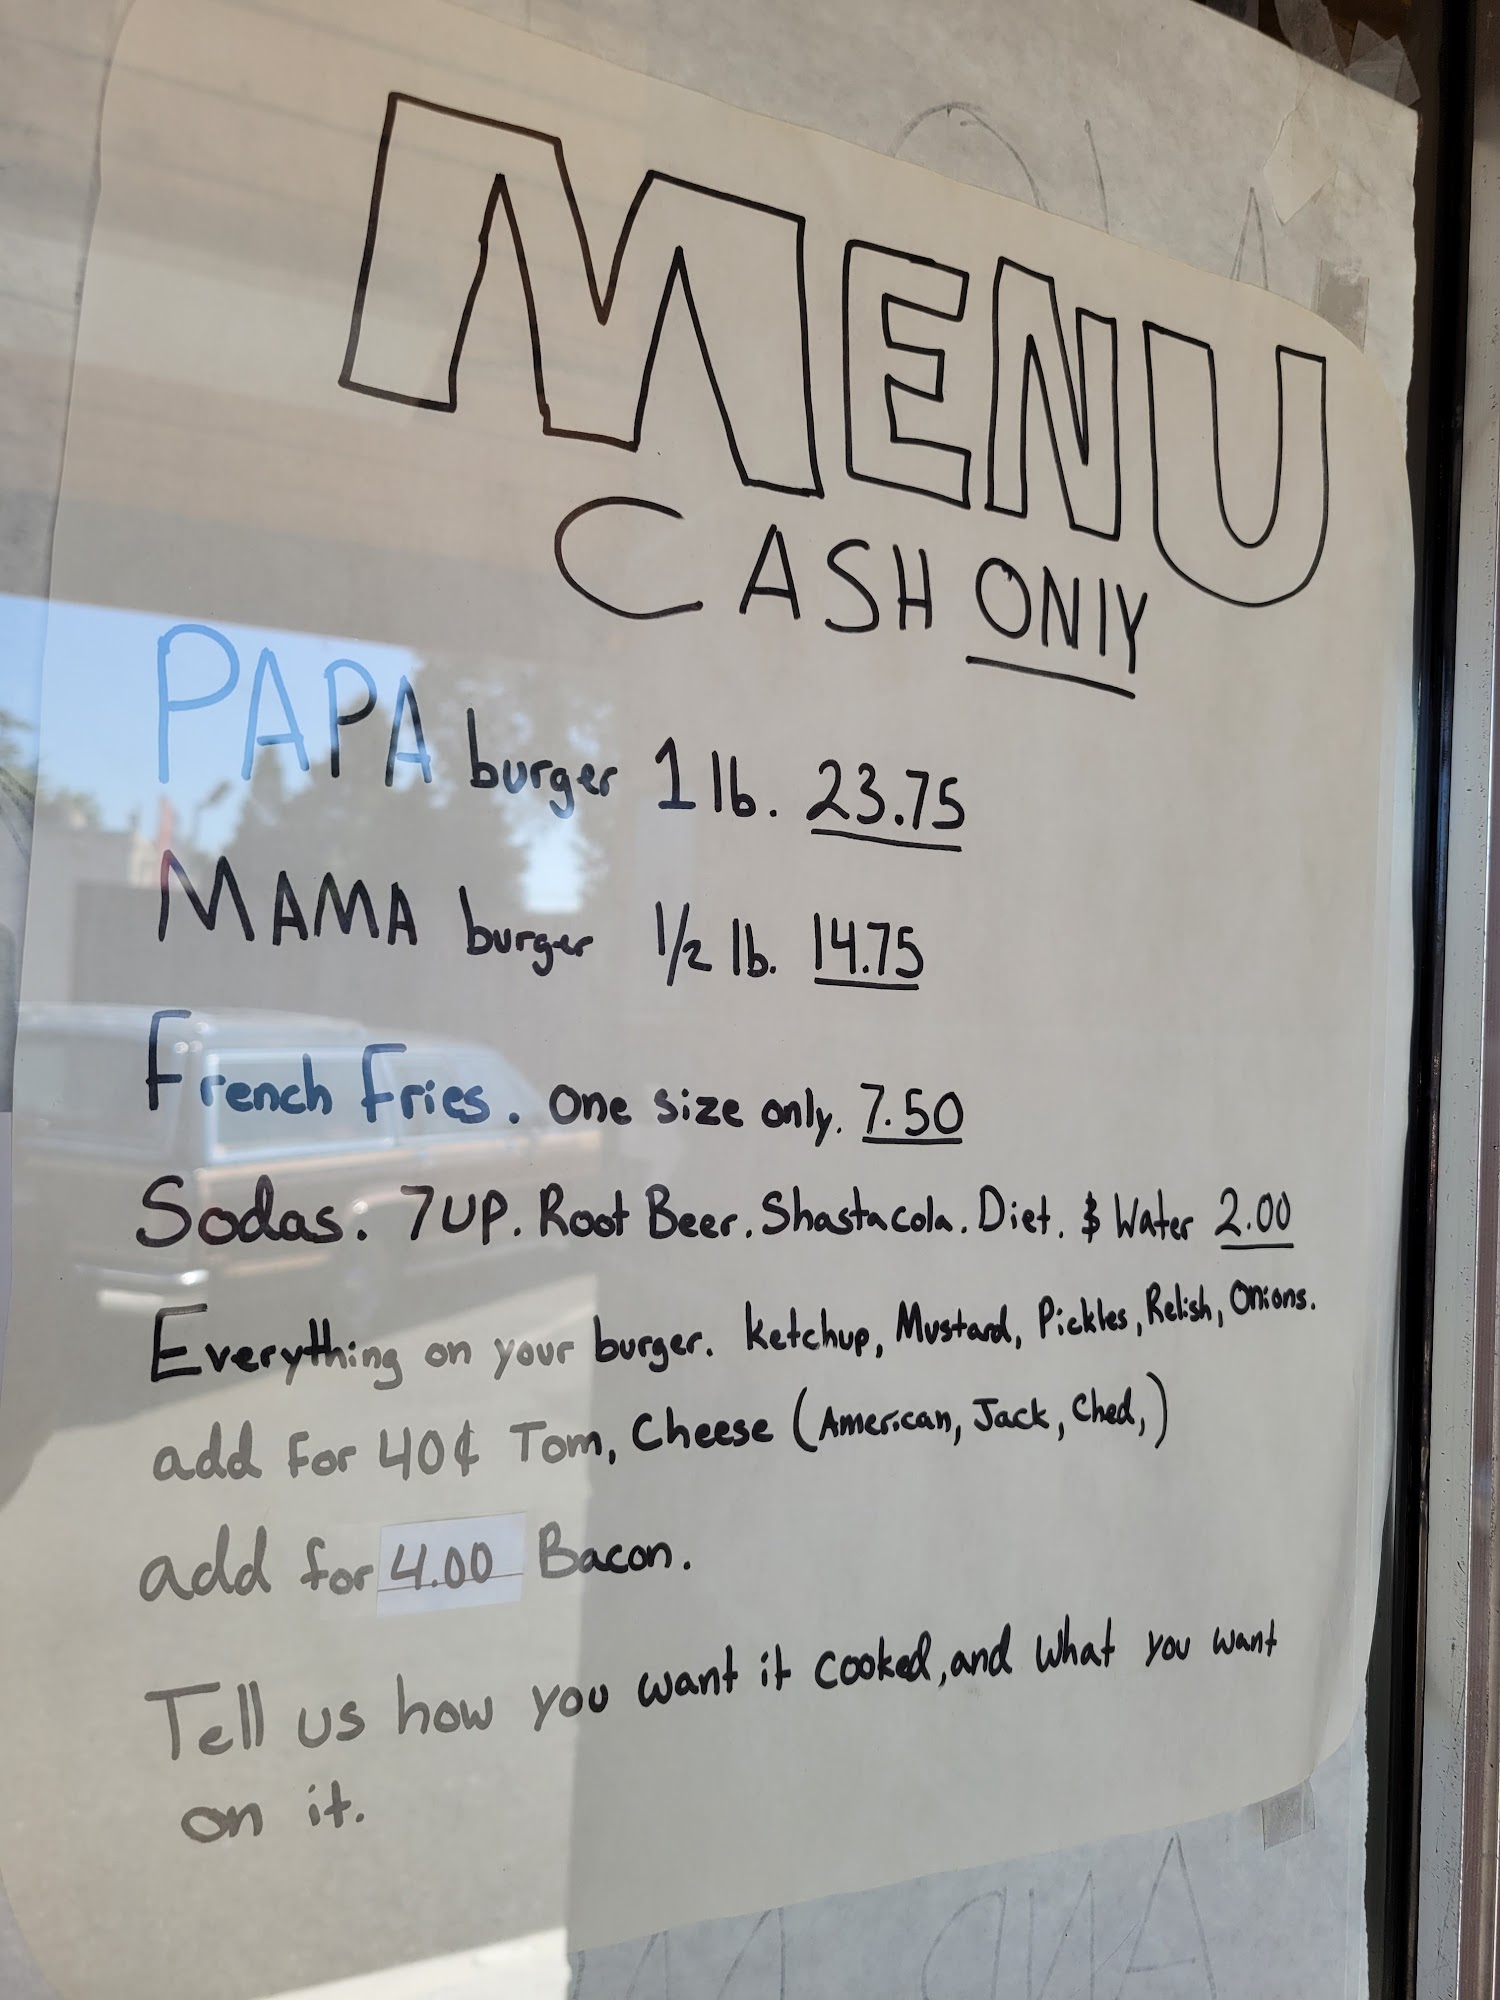 MENU
CASH ONlY
PAPA burger 1 lb. 23.75
MAMA burger 1/2 lb. 14.75
French Fries. one size only. 7.50
Sodas. 7UP. Root Beer. Shasta cola. Diet. $ Water 2.00
Everything on your burger. Ketchup, Mustard, Pickles, Relish, Onions.
add for 40¢ Tom, Cheese (American, Jack, Ched,)
add for 4.00 Bacon.
Tell us how you want it cooked, and what you want
on it.